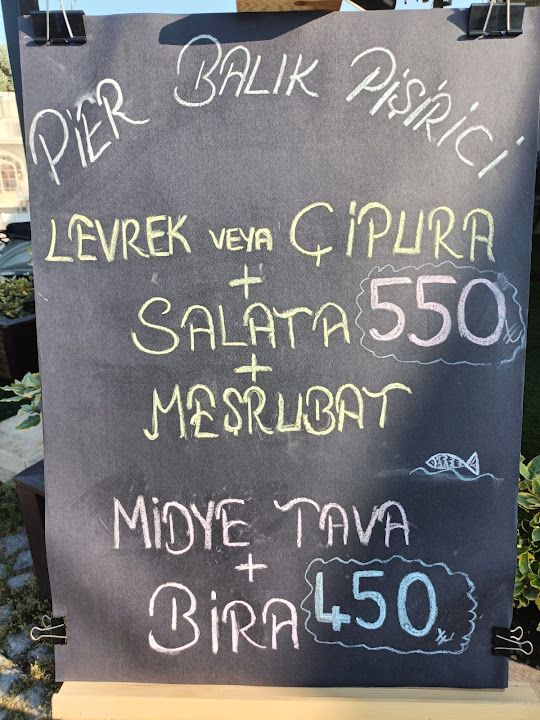 PiER BALIK PiŞiRiCi
LEVREK VEYA ÇiPURA
+
SALATA 550 ₺
+
MEŞRUBAT
MiDYE TAVA
+
BiRA 450 ₺